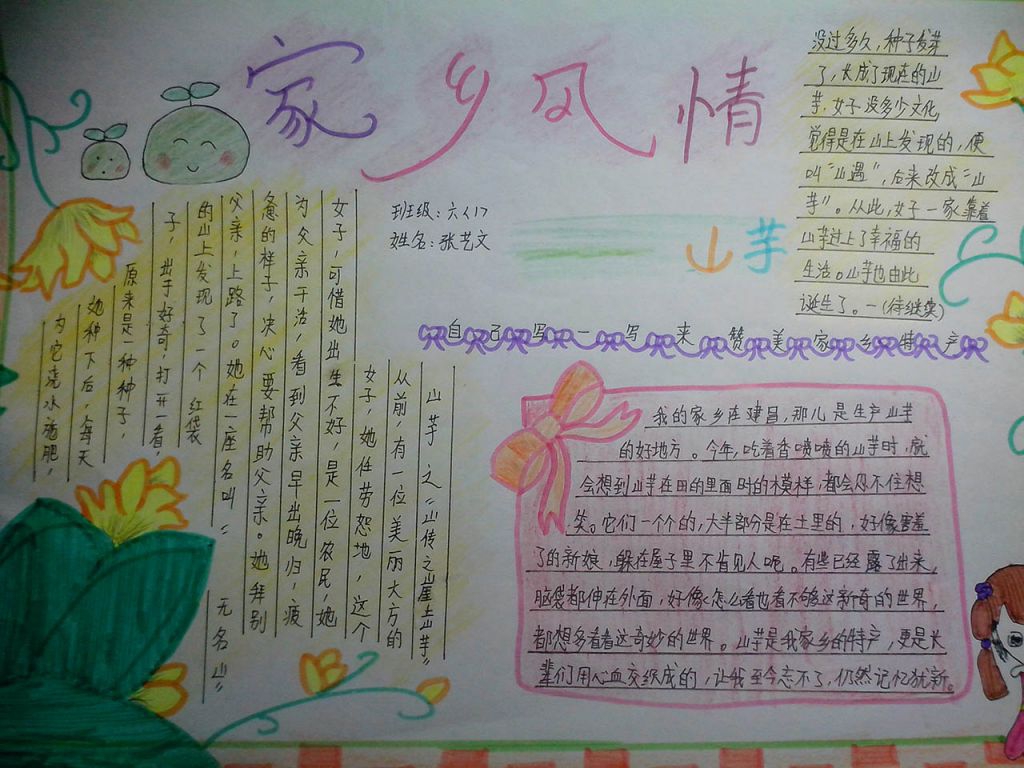 家乡风情
班级:六〈1〉
姓名:张艺文
山芋
山芋之"山传之山崖上山芋"
从前,有一位美丽大方的
女子,她任劳怨地,这个
女子,可惜她出生不好,是一位农民,她
为父亲干活,看到父亲早出晚归,疲
惫的样子,决心要帮助父亲。她拜别
父亲,上路了。她在一座名叫"无名山"
的山上发现了一个红袋
子,出于好奇,打开一看,
原来是一种种子,
她种下后,每天
为它浇水施肥,
没过多久,种子发芽
了,长成了现在的山
芋,女子没多少文化
觉得是在山上发现的,便
叫"山遇",后来改成"山
芋"。从此,女子一家靠着
山芋过上了幸福的
生活。山芋也由此
诞生了。一(待继续)
自己写一写来赞美家乡特产
我的家乡在建昌,那儿是生产山芋
的好地方。今年,吃着香喷喷的山芋时,就
会想到山芋在田的里面时的模样,都会忍不住想
笑。它们一个个的,大半部分是在土里的,好像害羞
了的新娘,躲在屋子里不肯见人呢。有些已经露了出来,
脑袋都伸在外面,好像怎么看也看不够这新奇的世界,
都想多看看这奇妙的世界。山芋是我家乡的特产,更是长
辈们用心血交织成的,让我至今忘不了,仍然记忆犹新。